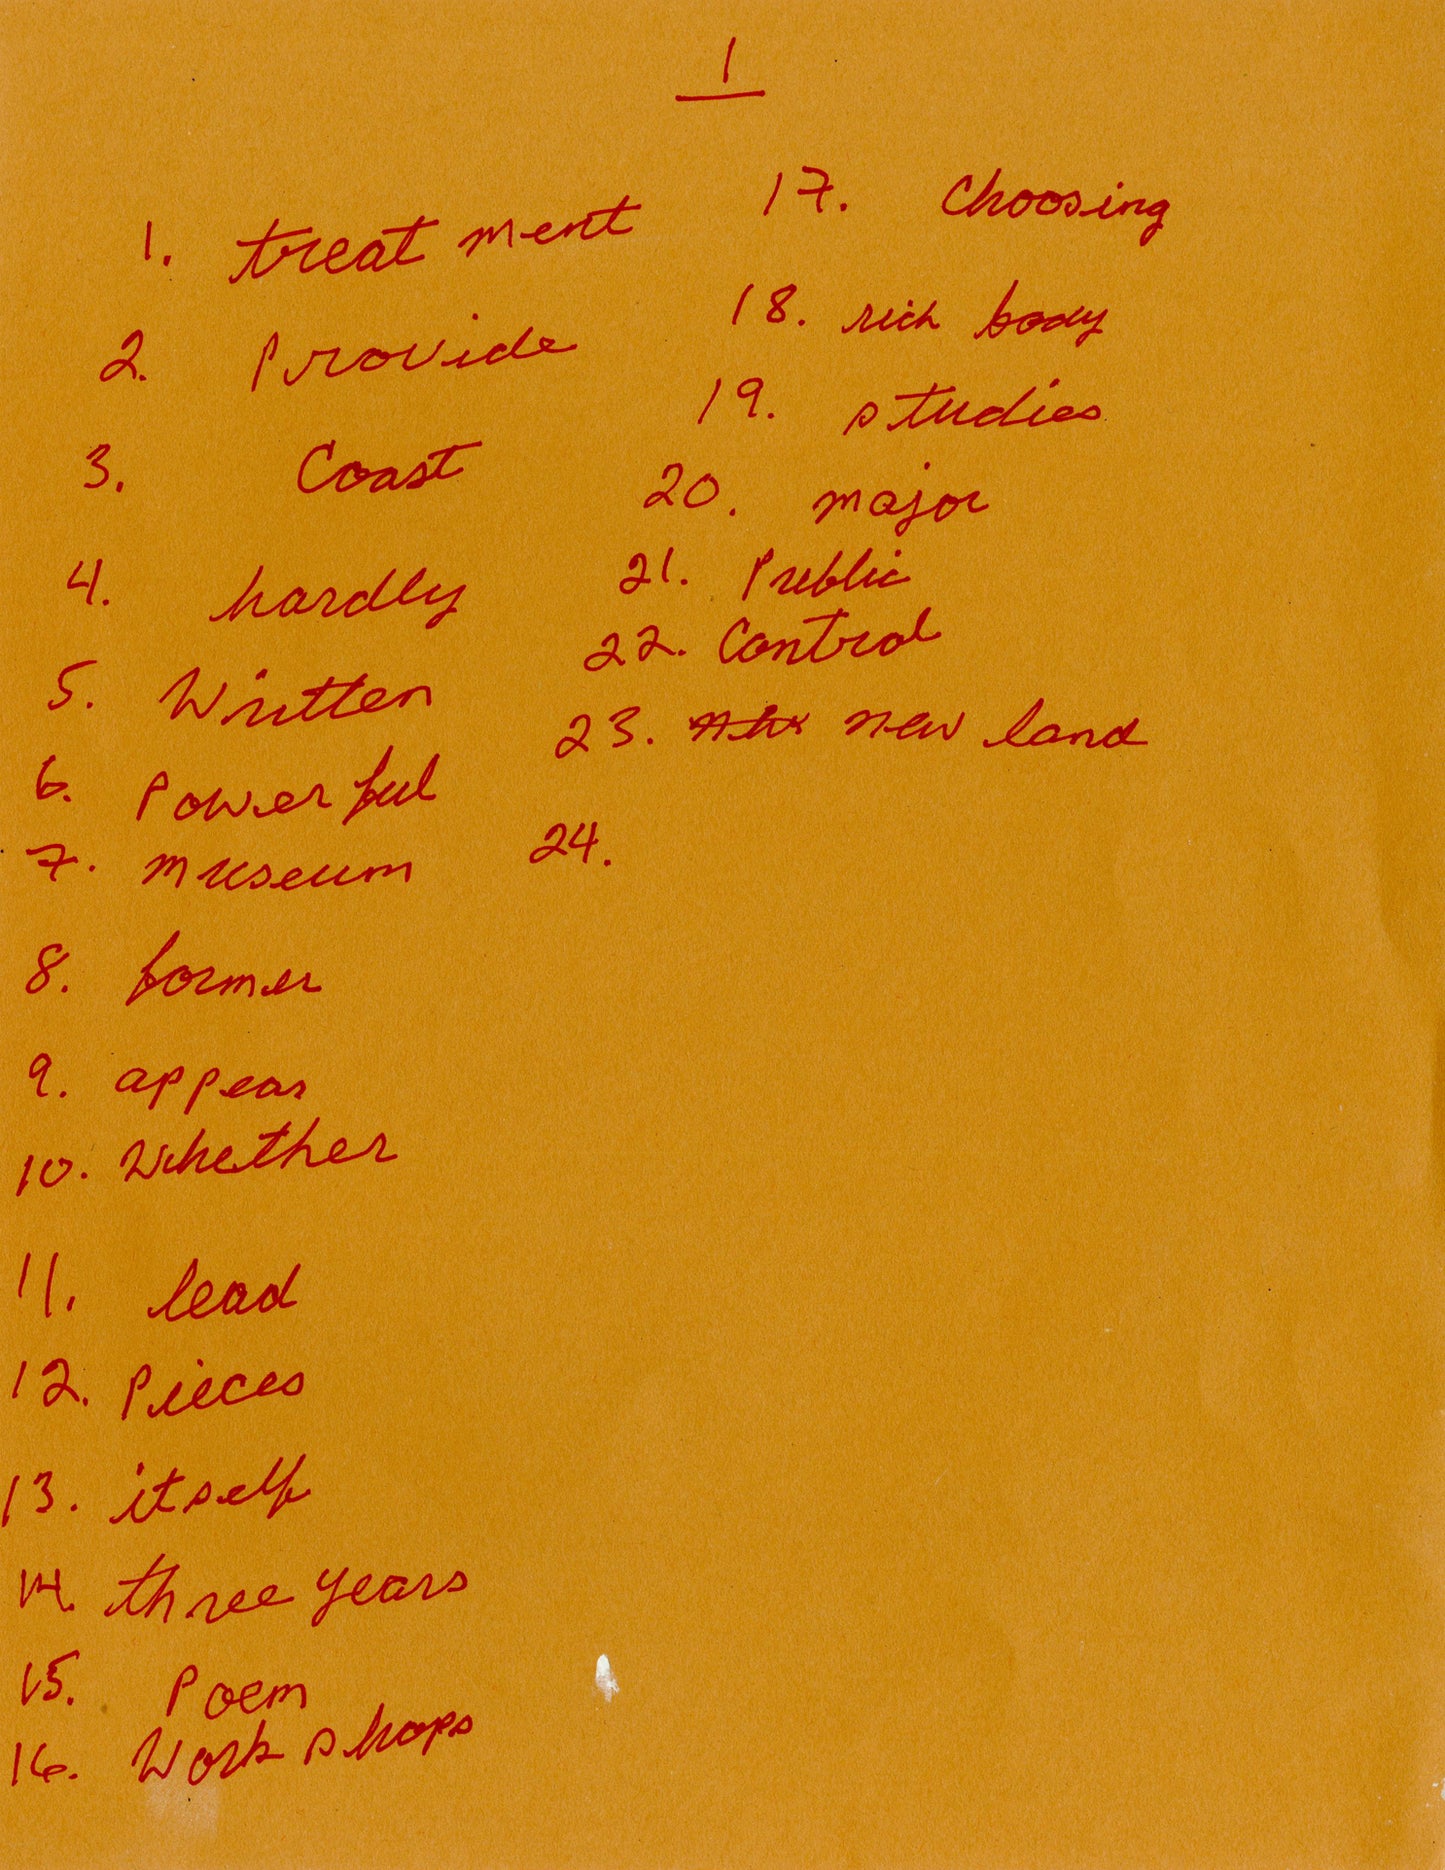 1
1. treatment
2. Provide
3. Coast
4. hardly
5. Written
6. Powerful
7. museum
8. former
9. appear
10. Whether
11. lead
12. Pieces
13. itself
14. three years
15. Poem
16. Workshops
17. Choosing
18. rich body
19. studies
20. major
21. Public
22. Control
23. new land
24.